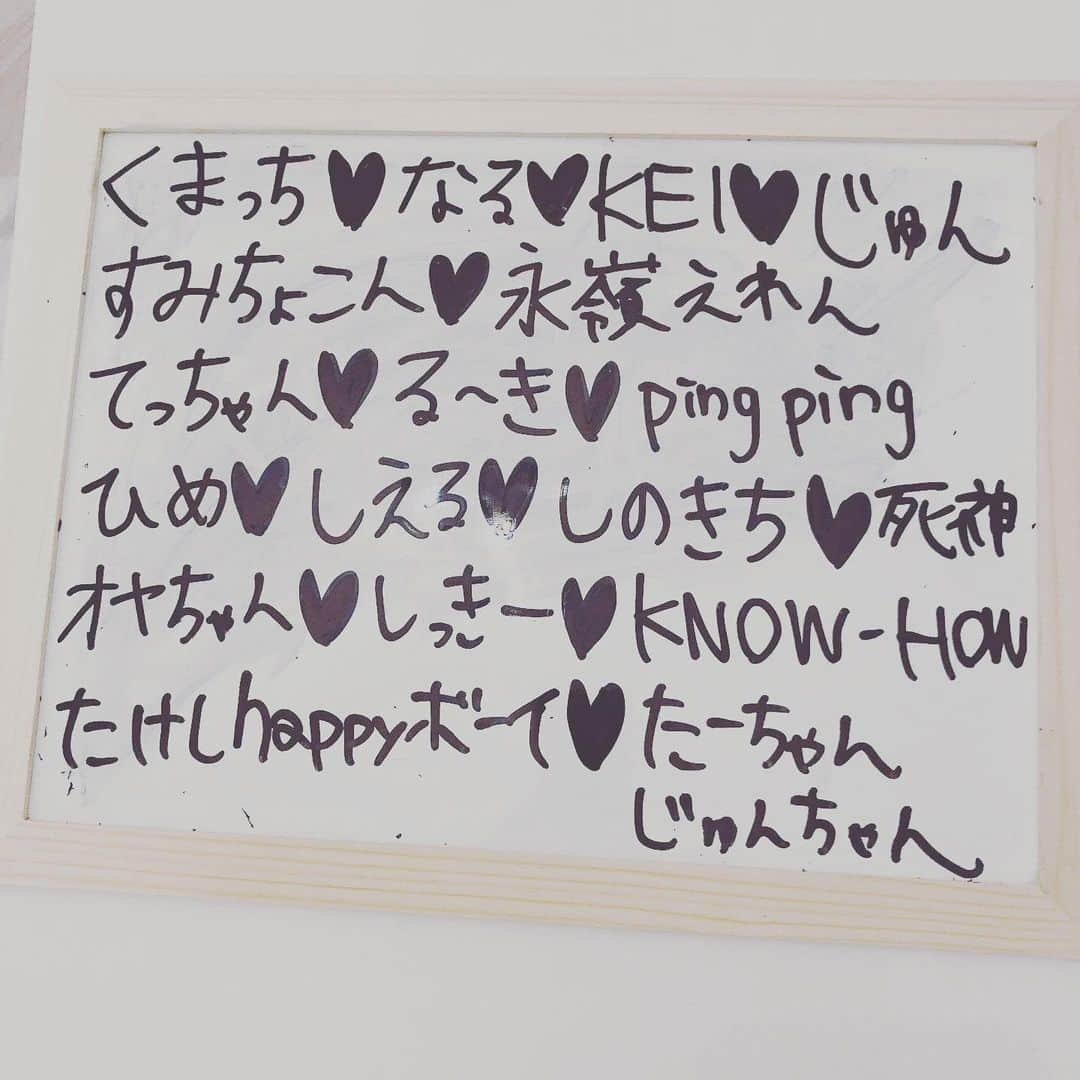 くまっち♥なる♥KEI♥じゅん
すみちょこん♥永嶺えれん
てっちゃん♥る〜き♥ping ping
ひめ♥しえる♥しのきち♥死神
オヤちゃん♥しっきー♥KNOW-HOW
たけしhappyボーイ♥たーちゃん
じゅんちゃん